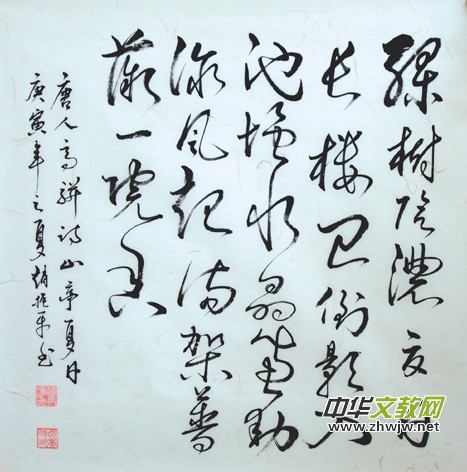 綠樹陰濃夏日
长樓台倒影入
池塘水晶簾動
微风起满架蔷
薇一院香
唐人高骈诗山亭夏日
庚寅年之夏书
中华文教网
www.zhwjw.net